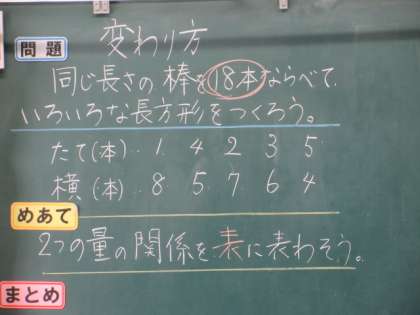 変わり方
問題
同じ長さの棒を18本ならべて、
いろいろな長方形をつくろう。
たて(本) 1 4 2 3 5
横(本) 8 5 7 6 4
めあて
2つの量の関係を表に表わそう。
まとめ